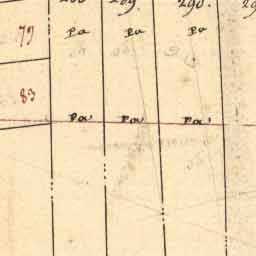 289. 290.
79 Pa Pa Pa
83
Pa Pa Pa